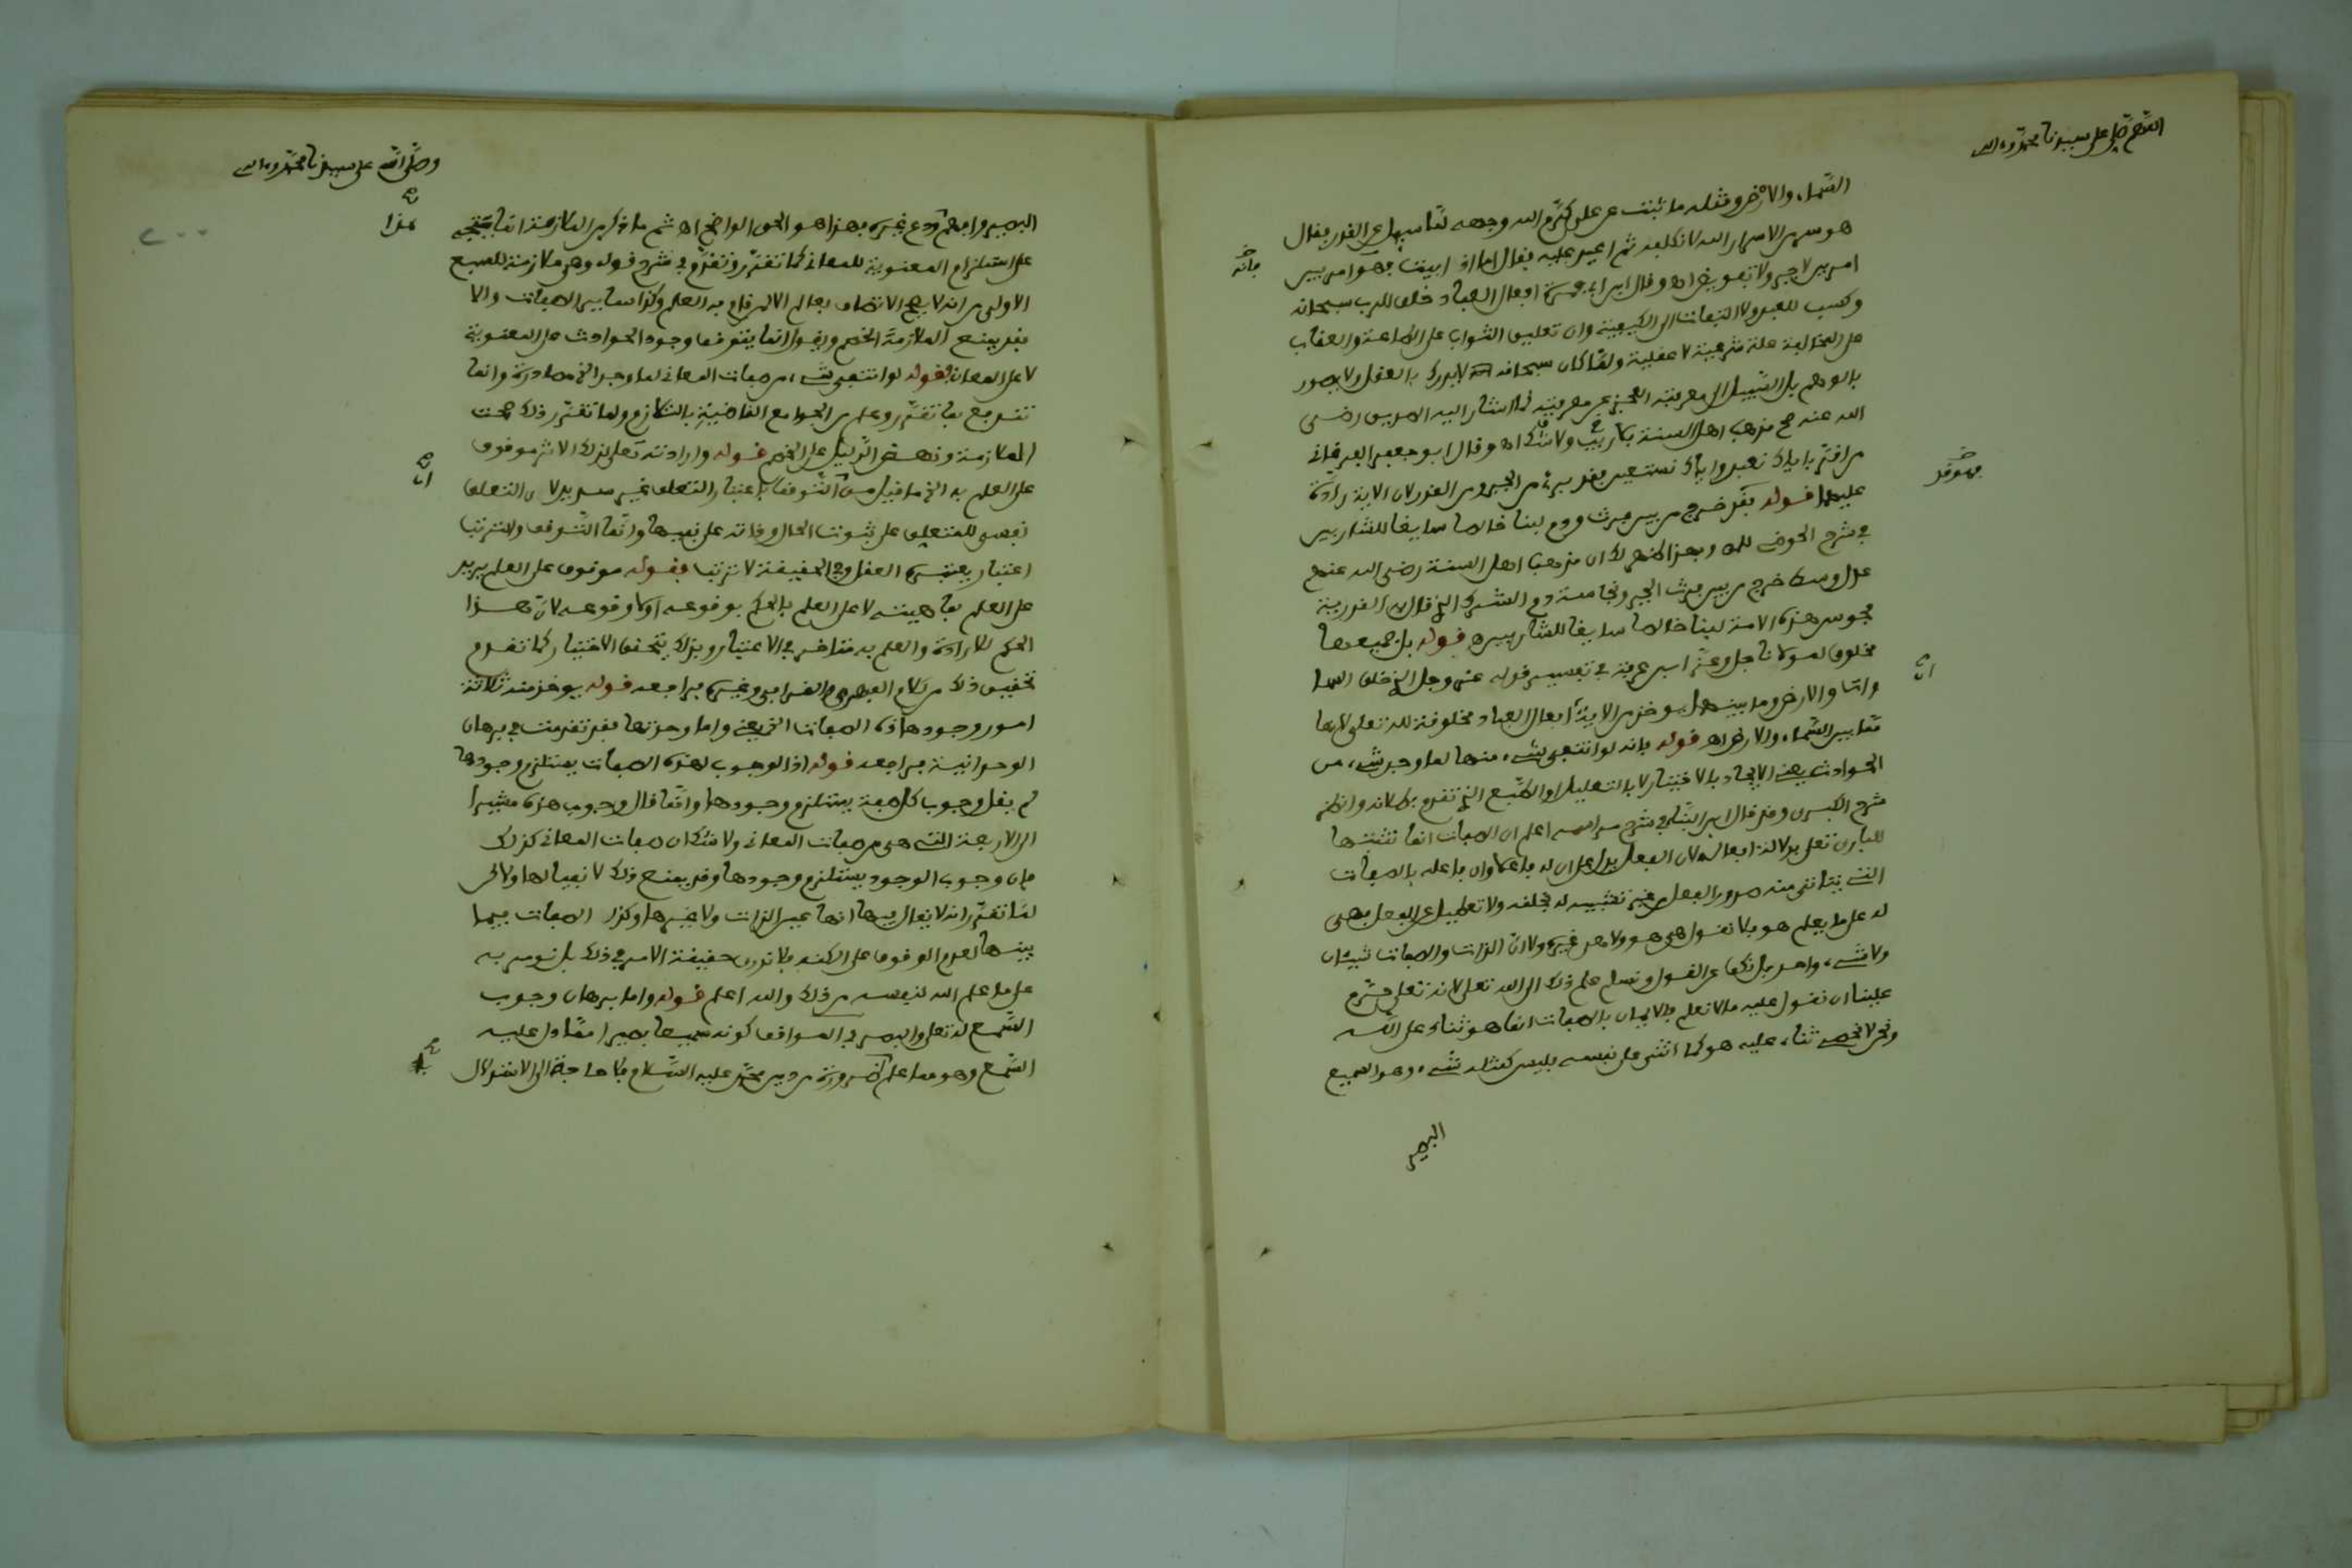 اللهم صل على سيدنا محمد وءاله
السماء والارض ومثله ما ثبت عن علي كرم الله وجهه لما سيل عن القدر فقال
هو سر من الاسرار الله لا نكلفه ثم اعيد عليه فقال اما اذ ابيت فهو امر بين
فانه
امرين لا جبر ولا تفويض اه وقال ابن ابي جمرة افعال العباد خلق للرب سبحانه
وكسب للعبد ولا التفات الى الكيفية وان تعليق الثواب على الطاعة والعقاب
على المخالفة علة شرعية لا عقلية ولما كان سبحانه لا يدرك بالعقل ولا يصور
بالوهم بل السبيل الى معرفته العجز عن معرفته كما اشار اليه الصديق رضي
الله عنه صح مذهب اهل السنة بلا ريب ولا شك اه وقال ابو جعفر
من اقر باياك نعبد واياك نستعين فقد برئ من الجبر ومن القدر لان الاية رادة
فهو قد
عليهما قوله فقد خرج من بين فرث ودم لبنا خالصا سايغا للشاربين
في شرح الحوضي وبهذا ظهر لك ان مذهب اهل السنة رضي الله عنهم
عدل وسط خرج من بين فرث الجبر ونجاسة دم الشرك الذي قال القدرية
مجوس هذه الامة لبنا خالصا سايغا للشاربين اه قوله بل جميعها
مخلوق لمولانا جل وعز ابن عرفة في تفسير قوله عز وجل الذي خلق السما
وات والارض وما بينهما يوخذ من الاية افعال العباد مخلوقة لله تعلى لانها
ات
مما بين السماء والارض اه قوله بانه لو انتفى شيء منها لما وجد شيء من
الحوادث يعني الايجاد بالاختيار لا بالتعليل او الطبع الذي تقدم بطلانه وانظر
شرح الكبرى وقد قال ابن الشاط في شرح مراسمه اعلم ان الصفات انما نثبتها
للباري تعلى بدلالة افعاله لان الفعل يدل على ان له فاعلا وان فاعله بالصفات
التي يتاتى منه صدور الفعل من غير تشبيه له بخلقه ولا تعطيل عن الفعل فهي
له على ما يعلم هو فلا نقول هي هو ولا هي غيره ولا ان الذات والصفات شيئان
ولا شيء واحد بل نكف عن القول ونسلم علم ذلك الى الله تعلى لانه تعلى حرم
علينا ان نقول عليه ما لا نعلم والايمان بالصفات انما هو ثناء على الله
ونحن لا نحصي ثناء عليه هو كما اثنى على نفسه فليس كمثله شيء وهو السميع
البصير
وصلى الله على سيدنا محمد وءاله
البصير وافهم ودع غيره فهذا هو الحق الواضح اه ثم ما ذكر من الملازمة انما يتجه
هذا
على استلزام المعنوية للمعاني كما تقرر وتقدم في شرح قوله وهي ملازمة للسبع
الاولى من انه لا يصح الاتصاف بعالم الا لمن قام به العلم وكذا ساير الصفات والا
فقد يمنع الملازمة الخصم ويقول انما يتوقف وجود الحوادث على المعنوية
لا على المعاني فقوله لو انتفى شيء من صفات المعاني لما وجد الخ مصادرة وانما
تندفع بما تقرر وعلم من الجوامع القاضية بالتلازم ولما تقرر ذلك صحت
الملازمة ونهض الدليل على الخصم قوله وارادته تعلى لذلك الاثر موقوف
على العلم به الخ ما قيل من التوقف باعتبار التعلق غير سديد لان التعلق
ات
نفسي للمتعلق على ثبوت الحال وذاته على نفيها وانما التوقف والترتب
اعتبار يعتبره العقل وفي الحقيقة لا ترتب فقوله موقوف على العلم يريد
على العلم بماهيته لا على العلم بالحكم بوقوعه او لا وقوعه لان هذا
الحكم للارادة والعلم به متاخر في الاعتبار وبذلك يتحقق الاختيار كما تقدم
تحقيق ذلك من كلام الفهري والقرافي وغيره فراجعه قوله يوخذ منه ثلاثة
امور وجود هاذه الصفات الخ يعني واما وحدتها فقد تقدمت في برهان
الوحدانية فراجعه قوله اذ الوجوب لهذه الصفات يستلزم وجودها
لم يقل وجوب كل صفة يستلزم وجودها وانما قال وجوب هذه مشيرا
الى الاربعة التي هي من صفات المعاني ولا شك ان صفات المعاني كذلك
فان وجوب الوجود يستلزم وجودها وقد يمنع ذلك لا نفيا لها ولاكن
لما تقرر انه لا يقال فيها انها عين الذات ولا غيرها وكذا الصفات فيما
بينها لعدم الوقوف على الكنه فلا ندري حقيقة الامر في ذلك بل نومن به
على ما علم الله لنفسه من ذلك والله اعلم قوله واما برهان وجوب
السمع له تعلى والبصر في المواقف كونه سميعا بصيرا مما دل عليه
السمع وهو مما علم ضرورة من دين محمد عليه السلام فلا حاجة الى الاستدلال